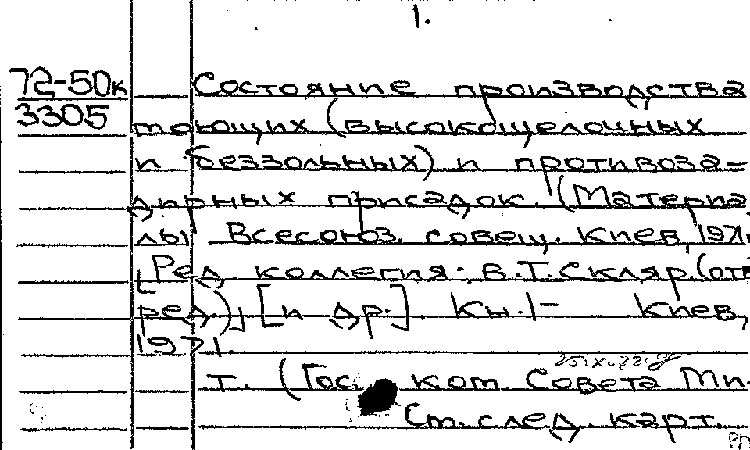 1.
72-50к Состояние производства
3305 моющих (высокощелочных
и беззольных) и противоза=
дирных присадок. (Материа
лы Всесоюз. совещ. Киев, 1971.
[Ред коллегия: В.Т. Скляр. (отв
ред.), [и др.]. Кн. 1- Киев,
1971.
т. (Гос. ком. Совета Ми.
См. след. карт.